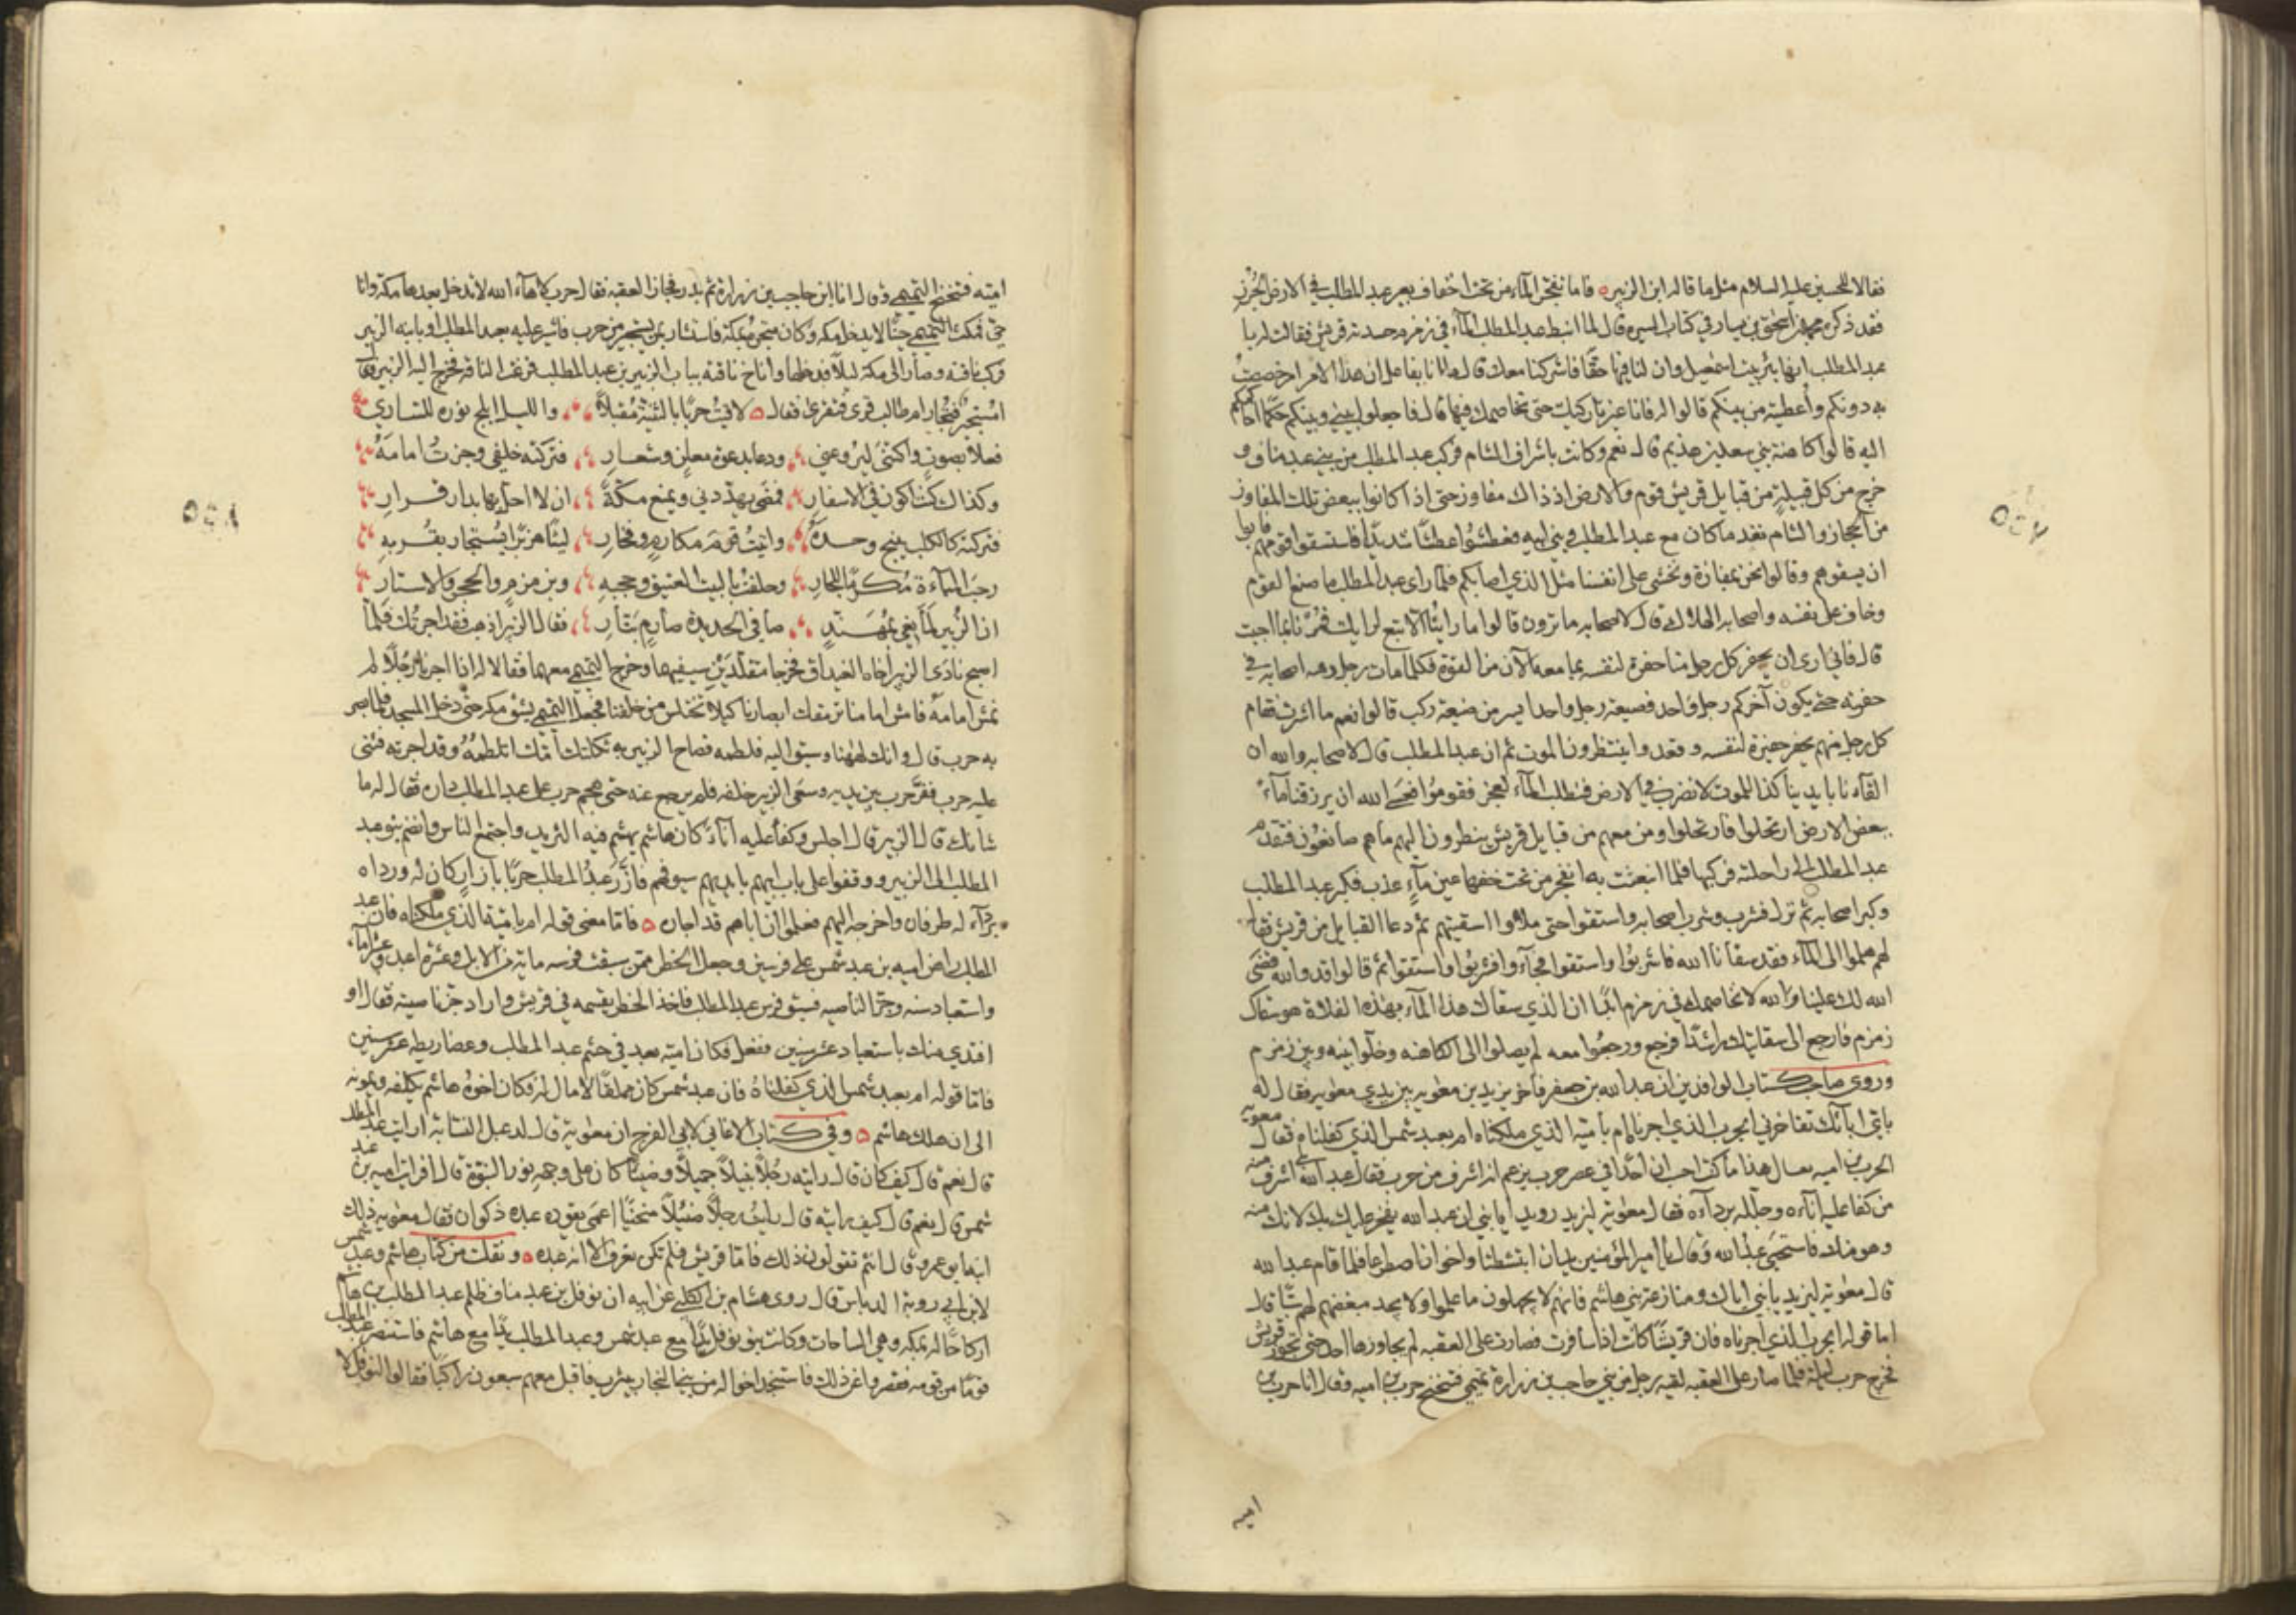 فقالا للحسين عليه السلام مثل ما قاله ابن الزبير ه فاما تفجر المآء من تحت اخفاف بعير عبد المطلب في الارض الجُرُزِ
فقد ذكره محمد بن اسحق بن يسار في كتاب السيره قال لما انبط عبد المطلب المآء في زمزم حسدته قريش فقالت له يا
عبد المطلب انها بئر بيت اسمعيل وان لنا فيها حقًّا فاشركنا معك قال ما انا بفاعل ان هذا الامر ا خصصتُ
به دونكم وأعطيته من بينكم قالوا له فانا غير تاركيك حتى نخاصمك فيها قال فاجعلوا بيني وبينكم حكمًا احاكمكم
اليه قالوا كاهنة بني سعد بن هذيم قال نعم وكانت باشراف الشام فركب عبد المطلب من بني عبد مناف و
خرج من كل قبيلة من قبايل قريش قوم والارض اذ ذاك مفاوز حتى اذا كانوا ببعض تلك المفاوز
من الحجاز والشام نفد ما كان مع عبد المطلب وبني ابيه فعطشوا عطشًا شديدًا فاستسقوا قومهم فابوا
ان يسقوهم وقالوا نحن بمفازة ونخشى على انفسنا مثل الذي اصابكم فلما راى عبد المطلب ما صنع القوم
وخاف على نفسه واصحابه الهلاك قال لاصحابه ما ترون قالوا ما راينا الا تبع لرايك فمُرنا بما احببت
قال فاني ارى ان يحفر كل رجل منا حفرة لنفسه بما معه الآن من القوة فكلما مات رجل دفنه اصحابه في
حفرته حتى يكون آخركم رجل واحد فضيعة رجل واحد ايسر من ضيعة ركب قالوا نعم ما اشرت فقام
كل رجل منهم يحفر حفرة لنفسه وقعدوا ينتظرون الموت ثم ان عبد المطلب قال لاصحابه والله ان
القآءنا بايدينا كذا للموت لا نضرب في الارض فنطلب المآء لعجز فقوموا فعسى الله ان يرزقنا مآءً
ببعض الارض ارتحلوا فارتحلوا ومن معهم من قبايل قريش ينظرون اليهم ما هم صانعون فتقدم
عبد المطلب الى راحلته فركبها فلما انبعثت به انفجر من تحت خفها عين مآءٍ عذب فكبر عبد المطلب
وكبر اصحابه ثم نزل فشرب وشرب اصحابه واستقوا حتى ملاوا اسقيتهم ثم دعا القبايل من قريش فقال
لهم هلموا الى المآء فقد سقانا الله فاشربوا واستقوا فجآءوا فشربوا واستقوا ثم قالوا قد والله قضى
الله لك علينا والله لا نخاصمك في زمزم ابدًا ان الذي سقاك هذا المآء بهذه الفلاة هو سقاك
زمزم فارجع الى سقايتك راشدًا فرجع ورجعوا معه لم يصلوا الى الكاهنه وخلّوا بينه وبين زمزم
وروى صاحب كتاب الوافدين ان عبد الله بن جعفر فاخر يزيد بن معوية بين يدي معوية فقال له
باي ابآئك تفاخرني ابحرب الذي اجرناه ام بامية الذي ملكناه ام بعبد شمس الذي كفلناه فقال معويه
الحرب بن اميه يقال هذا ما كنت احسب ان احدًا في عصر حرب يزعم انه اشرف من حرب فقال عبد الله بلى اشرف منه
من كفا عليه انآءه وجلله بردآءه فقال معوية ليزيد رويدًا يابني ان عبد الله يفخر عليك بك لانك منه
وهو منك فاستحيى عبد الله وقال يا امير المؤمنين يدان انتشطتا واخوان اصطرعا فلما قام عبد الله
قال معوية ليزيد يابني اياك ومنازعة بني هاشم فانهم لا يجهلون ما علموا ولا يجد مبغضهم لهم سبًّا قال
اما قوله ابحرب الذي اجرناه فان قريشًا كانت اذا سافرت فصارت على العقبه لم يجاوزها احد حتى تجوز قريش
فخرج حرب ليلة فلما صار على العقبه لقيه رجل من بني حاجب بن زرارة تميمي فتنحنح حرب بن اميه وقال انا حرب بن
اميه
اميه فتنحنح التميمي وقال انا ابن حاجب بن زرارة ثم بدر فجاز العقبه فقال حرب لاها الله لا تدخل بعدها مكة وانا
حي فمكث التميمي حينًا لا يدخل مكه وكان متجره بمكة فاستشار بمن يستجير من حرب فاشير عليه بعبد المطلب او بابنه الزبير
فركب ناقته وصار الى مكة ليلًا فدخلها واناخ ناقته بباب الزبير بن عبد المطلب فرغت الناقه فخرج اليه الزبير فقال
امُستجير فتُجار ام طالب قرى فتقرى فقال ه لاقيتُ حربًا بالثنية مُقبلًا والليل ابلج نوره للساري
فعلا بصوتٍ واكتنى ليروعني ودعا بدعوة معلن وشعارِ فتركته خلفي وجزتُ امامَهُ
وكذاك كنت اكون في الاسفارِ فمضى يهددني ويمنع مكةً ان لا احل بها بدار قرارِ
فتركته كالكلب ينبح وحدهُ واتيتُ قوم مكارمٍ وفخارِ ليثًا هزبرًا يُستجار بقُربه
رحب المبآءة مُكرمًا للجارِ وحلفت بالبيت العتيق وحجه وبزمزم والحجر والاستارِ
ان الزبير لمانعي بمُهندٍ صافي الحديدة صارمٍ بتّارِ فقال الزبير اذهب فقد اجرتك فلما
اصبح نادى الزبير اخاه الغيداق فخرجا متقلدين سيفيهما وخرج التميمي معهما فقالا له انا اذا اجرنا رجلًا لم
نمش امامه فامش امامنا ترمقك ابصارنا كيلا تختلس من خلفنا فجعل التميمي يشق مكه حتى دخل المسجد فلما بصر
به حرب قال وانك لههنا وسبق اليه فلطمه فصاح الزبير به ثكلتك امك اتلطمه وقد اجرته فثنى
عليه حرب ففر حرب بين يديه وسعى الزبير خلفه فلم يرجع عنه حتى هجم حرب على عبد المطلب داره فقال له ما
شانك قال الزبير قال اجلس وكفا عليه انآءً كان هاشم يهشم فيه الثريد واجتمع الناس وانضم بنو عبد
المطلب الى الزبير ووقفوا على باب ابيهم بايديهم سيوفهم فازّر عبد المطلب حربًا بازارٍ كان له ورداه
بردآء له طرفان واخرجه اليهم فعلموا ان اباهم قد اجاره ه فاما معنى قوله ام بامية الذي ملكناه فان عبد
المطلب راهن اميه بن عبد شمس على فرسين وجعل الخطر ممن سبقت فرسه ماية من الابل وعشرة اعبد وعشر امآء
واستعباد سنه وجزّ الناصيه فسبق فرس عبد المطلب فاخذ الخطر يقسمه في قريش واراد جزّ ناصيته فقال او
افتدي منك باستعباد عشر سنين ففعل فكان اميه بعد في حشم عبد المطلب وعضاريطه عشر سنين
فاما قوله ام بعبد شمس الذي كفلناهُ فان عبد شمس كان مملقًا لا مال له فكان اخوه هاشم يكلفه ويمونه
الى ان هلك هاشم ه وفي كتاب الاغاني لابي الفرج ان معوية قال لدغبل النسّابة ارايت عبد المطلب
قال نعم قال كيف كان قال رايته رجُلًا نبيلًا جميلًا وضيئًا كان على وجهه نور النبوة قال افرايت اميه بن عبد
شمس قال نعم قال كيف رايته قال رايتُ رجلًا ضئيلًا منحنيًا اعمى يقوده عبده ذكوان فقال معويه ذلك
ابنه ابو عمرو قال انتم تقولون ذلك فاما قريش فلم تكن تعرف الا انه عبده ه ونقلت من كتاب هاشم وعبد شمس
لابن ابي روبة الدباس قال روى هشام بن الكلبي عن ابيه ان نوفل بن عبد مناف ظلم عبد المطلب بن هاشم
اركاحًا له بمكه وهي الساحات وكانت بنو نوفل يدًا مع عبد شمس وعبد المطلب يدًا مع هاشم فاستنصر عبد المطلب
قومًا من قومه فقصروا عن ذلك فاستنجد اخواله من بني النجار بيثرب فاقبل معهم سبعون راكبًا فقالوا لنوفل لا